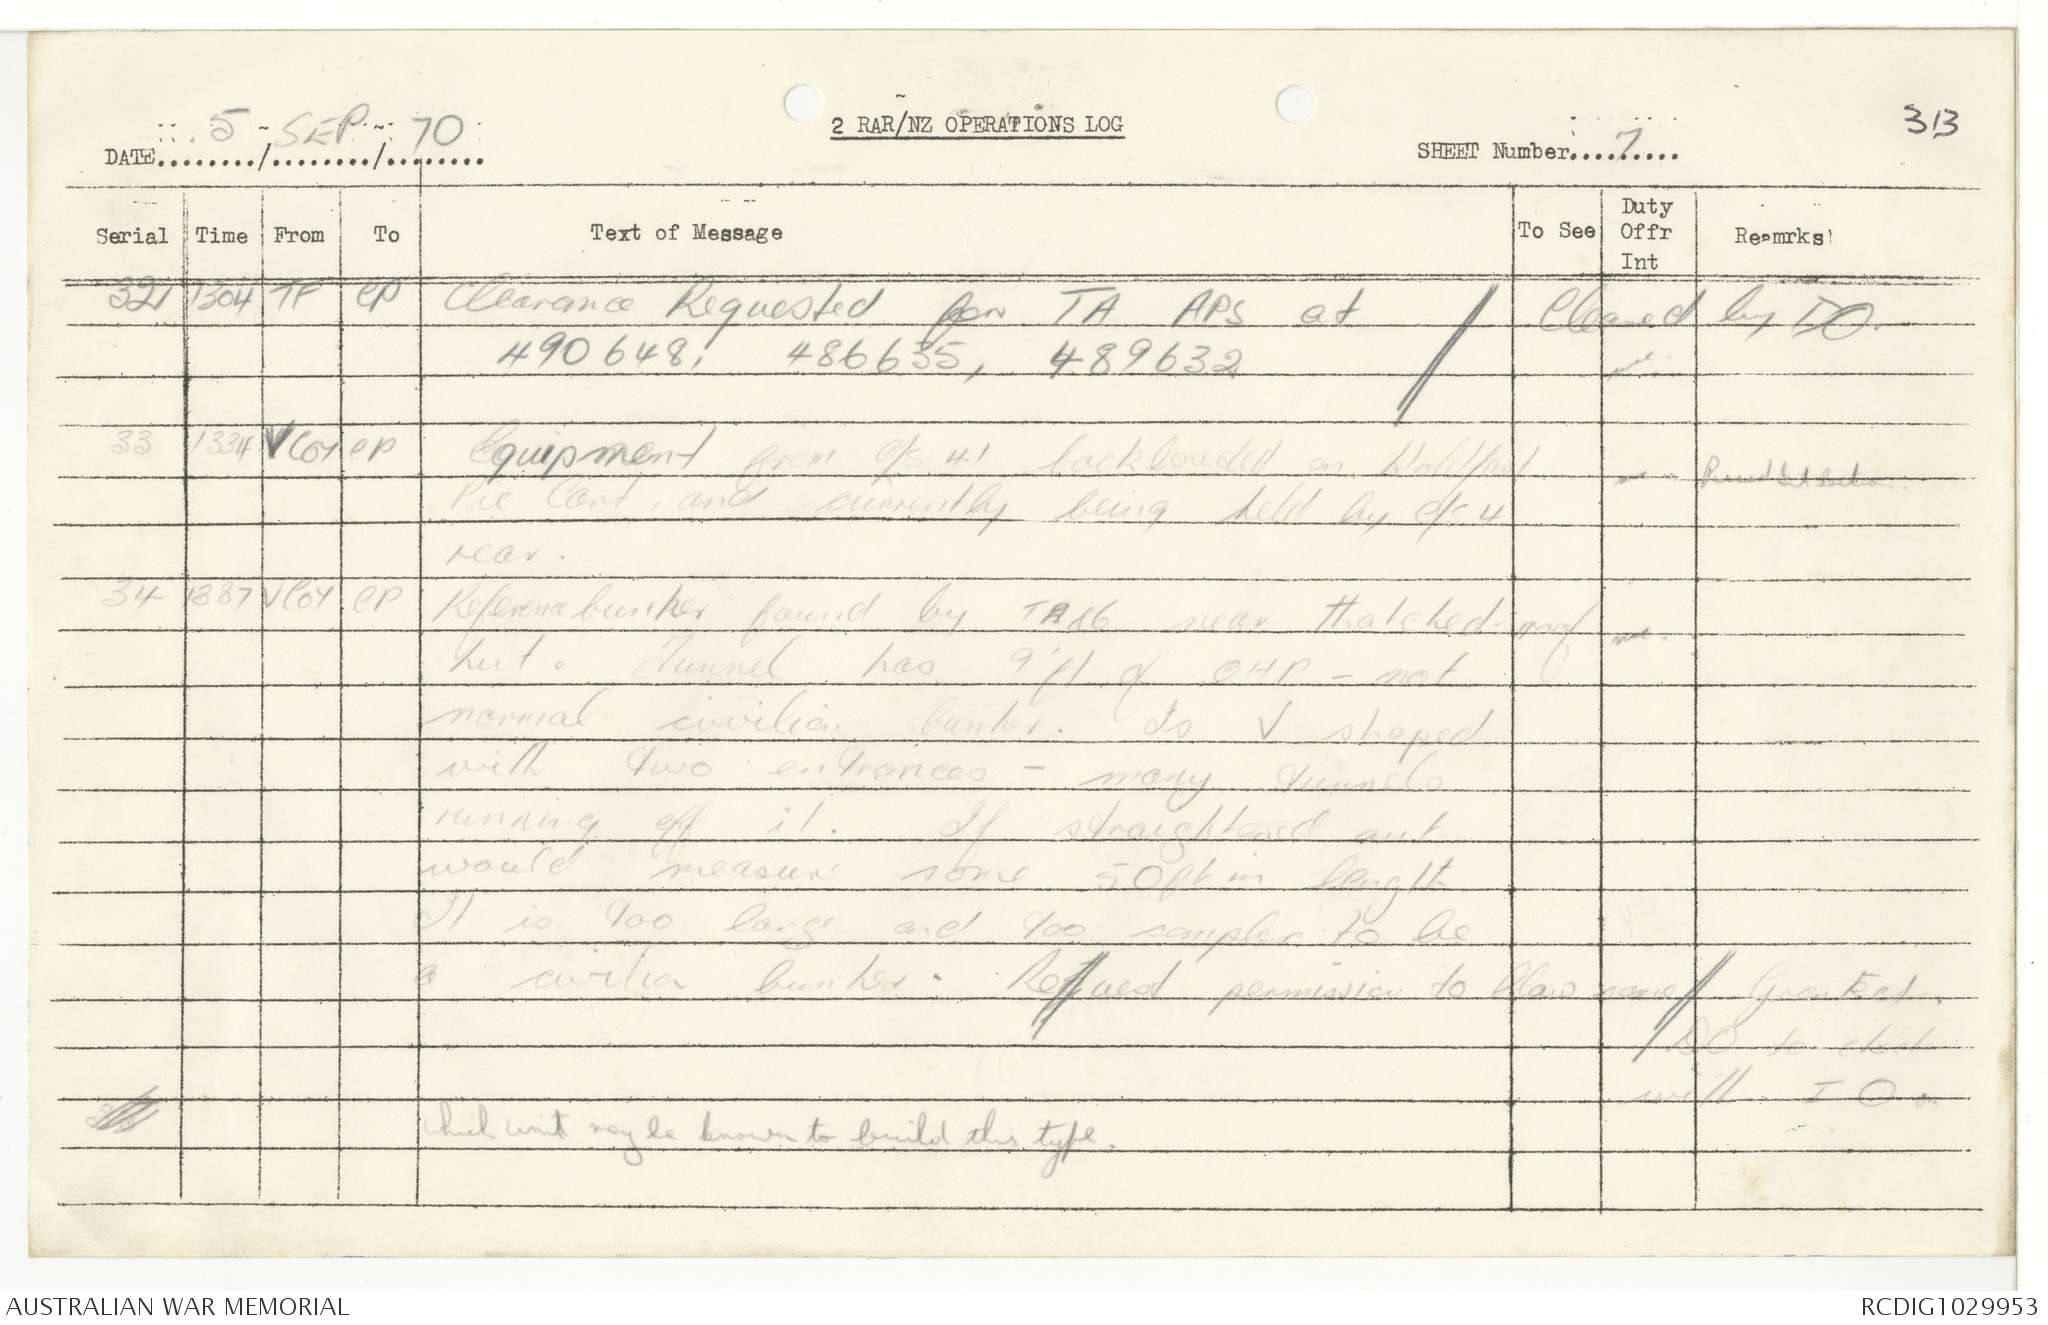 313
2 RAR/NZ OPERATIONS LOG
DATE 5 / SEP / 70
SHEET Number 7
Serial Time From To Text of Message To See Duty Offr Int Remrks
32 1304 TF CP Clearance Requested for TA APS at Cleared by DO.
490648, 486635, 489632
33 1334 V Coy CP Equipment from c/s 41 backloaded on
Pie Cart, and currently being held by c/s 4
rear.
34 V Coy CP Reference bunker found by TA 86 near thatched roof
hut. Tunnel has 9 ft of OHP - not
normal civilian bunker. Is V shaped
with two entrances - many tunnels
running off it. If straightened out
would measure some 50ft in length
It is too large and too complex to be
a civilian bunker. permission to blow same Granted.
DO to check
with I O on
which unit may be known to build this type.
AUSTRALIAN WAR MEMORIAL RCDIG1029953